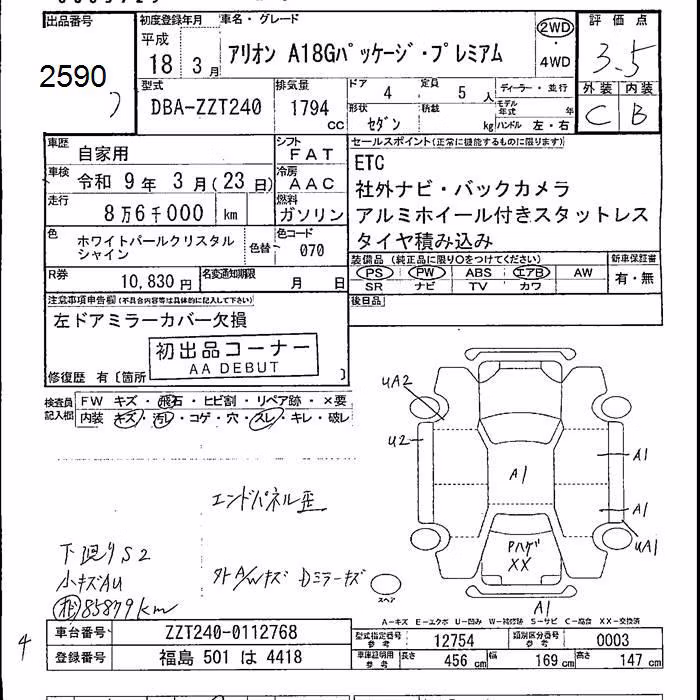 出品番号 初度登録年月 車名・グレード 評価点
2590
平成 18 3月 アリオン A18Gパッケージ・プレミアム 2WD・4WD 3.5
型式 排気量 ドア 4 定員 5人 ディーラー・並行 外装 内装
DBA-ZZT240 1794cc 形状 セダン 積載 kg モデル年式 年 ハンドル 左・右 C B
車歴 自家用 シフト FAT セールスポイント(正常に機能するものに限ります)
車検 令和 9年 3月(23日) 冷房 AAC ETC
走行 8万6千000 km 燃料 ガソリン 社外ナビ・バックカメラ
アルミホイール付きスタットレス
タイヤ積み込み
色 ホワイトパールクリスタルシャイン 色替 色コード 070
装備品(純正品に限り○をつけてください) 新車保証書
PS PW ABS エアB AW 有・無
SR ナビ TV カワ
R券 10,830円 名変通知期限 月 日 後日品
注意事項申告欄(不具合内容等は具体的に記入して下さい)
左ドアミラーカバー欠損
初出品コーナー
AA DEBUT
修復歴 有〔箇所 〕
検査員記入欄 FW キズ・飛石・ヒビ割・リペア跡・×要
内装 キズ・汚レ・コゲ・穴・スレ・キレ・破レ
UA2
U2
A1
A1
A1
UA1
Pハゲ
XX
A1
エンドパネル歪
下廻りS2
小キズAU
外A/Wキズ Dミラーキズ
スペア
85879km
A−キズ E−エクボ U−凹み W−補修跡 S−サビ C−腐食 XX−交換済
4
車台番号 ZZT240-0112768 型式指定番号 参考 12754 類別区分番号 参考 0003
登録番号 福島 501 は 4418 車庫証明用 参考 長さ 456cm 幅 169cm 高さ 147cm